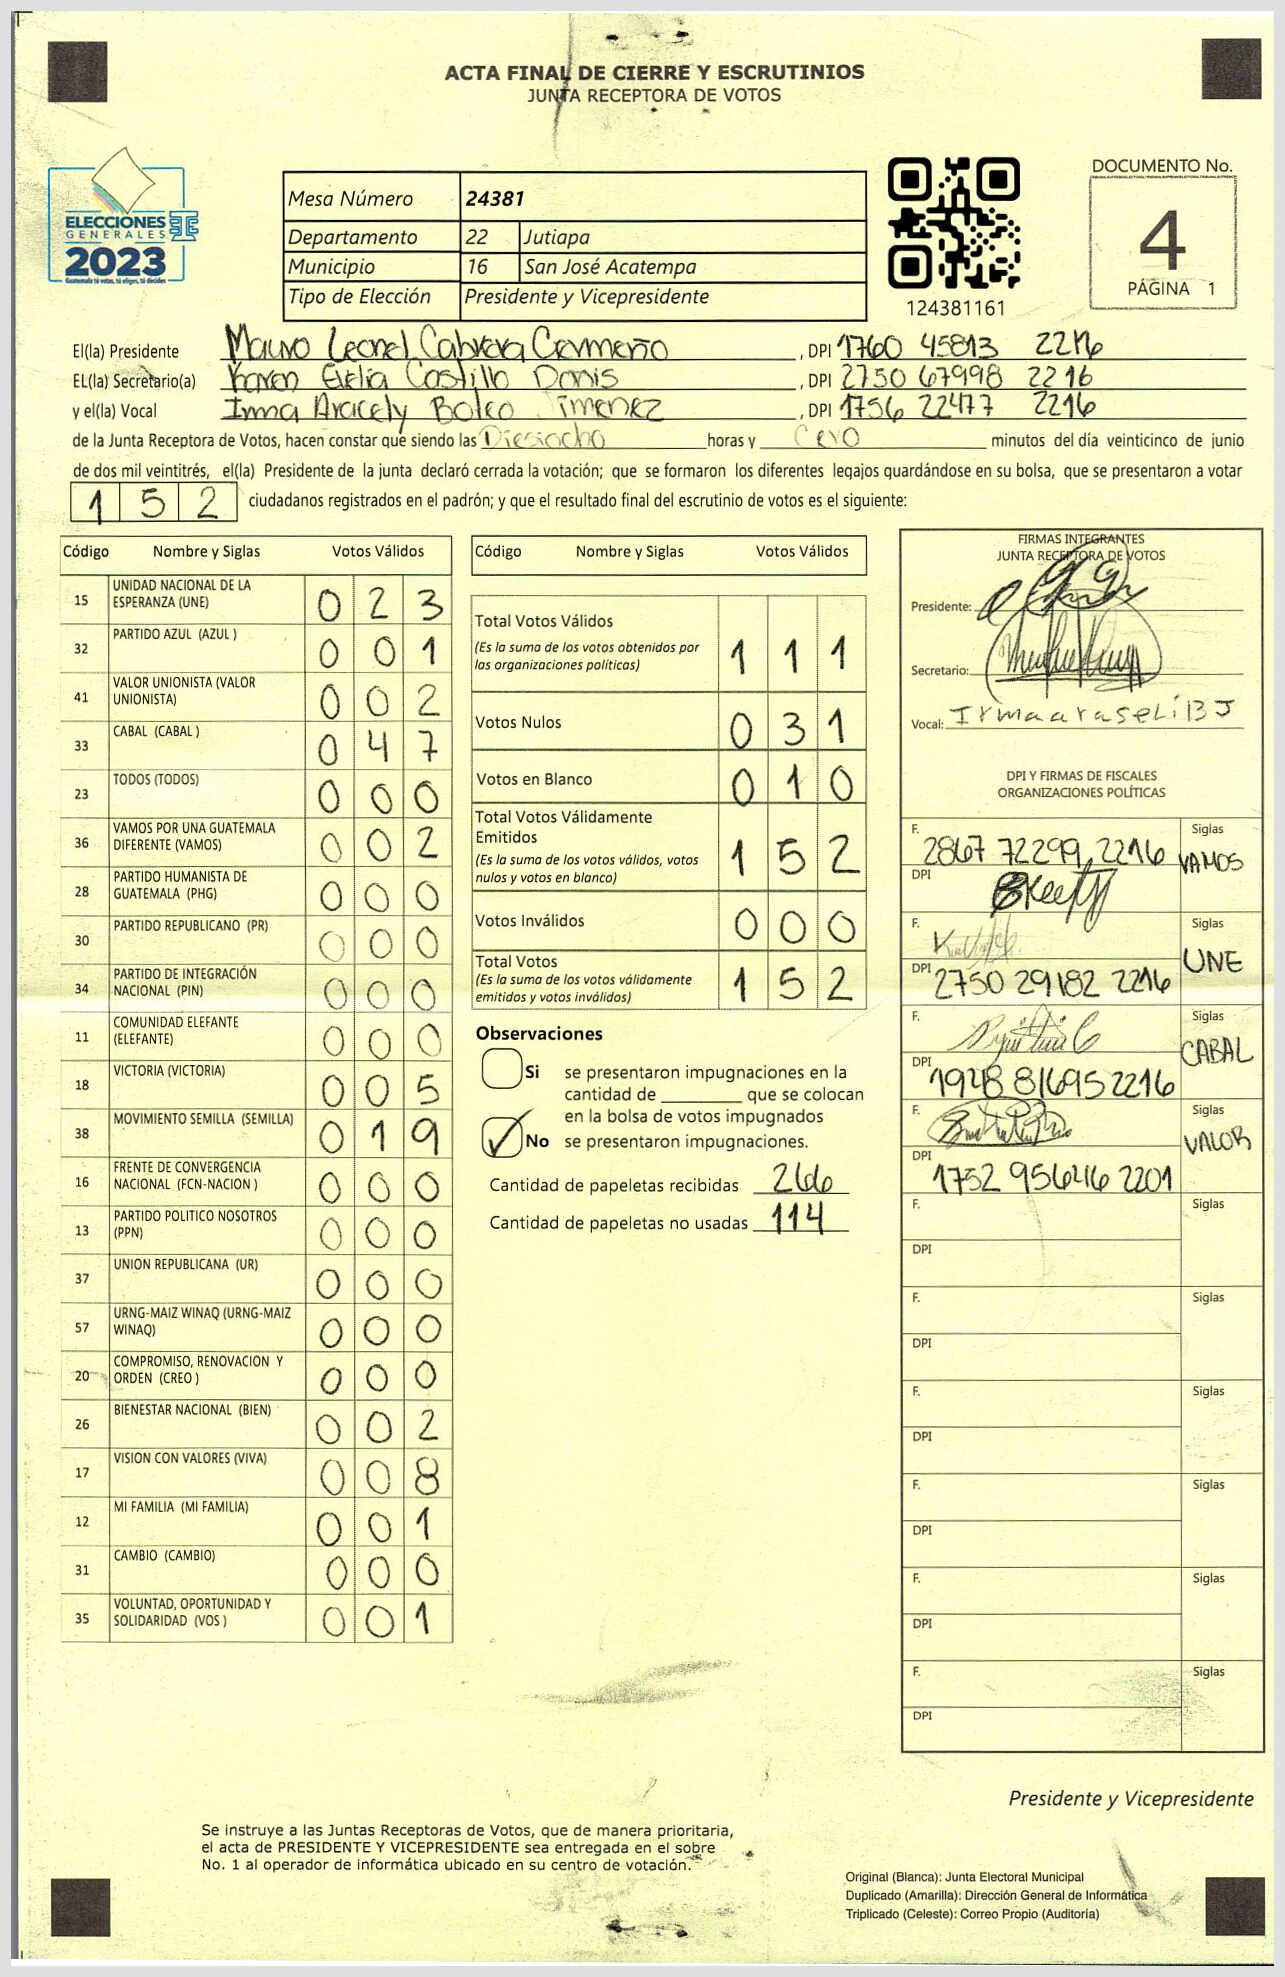 ACTA FINAL DE CIERRE Y ESCRUTINIOS
JUNTA RECEPTORA DE VOTOS
ELECCIONES
GENERALES
2023
Guatemala tú votas, tú eliges, tú decides
Mesa Número 24381
Departamento 22 Jutiapa
Municipio 16 San José Acatempa
Tipo de Elección Presidente y Vicepresidente
124381161
DOCUMENTO No.
4
PÁGINA 1
El(la) Presidente Mauro Leonel Cabrera Cermeño, DPI 1760 45813 2216
EL(la) Secretario(a) Karen Evelia Castillo Donis, DPI 2750 67998 2216
y el(la) Vocal Irma Aracely Boteo Jimenez, DPI 1756 22477 2216
de la Junta Receptora de Votos, hacen constar que siendo las Diesiocho horas y Cero minutos del día veinticinco de junio
de dos mil veintitrés, el(la) Presidente de la junta declaró cerrada la votación; que se formaron los diferentes legajos quardándose en su bolsa, que se presentaron a votar
152 ciudadanos registrados en el padrón; y que el resultado final del escrutinio de votos es el siguiente:
Código Nombre y Siglas Votos Válidos
15 UNIDAD NACIONAL DE LA ESPERANZA (UNE) 0 2 3
32 PARTIDO AZUL (AZUL ) 0 0 1
41 VALOR UNIONISTA (VALOR UNIONISTA) 0 0 2
33 CABAL (CABAL ) 0 4 7
23 TODOS (TODOS) 0 0 0
36 VAMOS POR UNA GUATEMALA DIFERENTE (VAMOS) 0 0 2
28 PARTIDO HUMANISTA DE GUATEMALA (PHG) 0 0 0
30 PARTIDO REPUBLICANO (PR) 0 0 0
34 PARTIDO DE INTEGRACIÓN NACIONAL (PIN) 0 0 0
11 COMUNIDAD ELEFANTE (ELEFANTE) 0 0 0
18 VICTORIA (VICTORIA) 0 0 5
38 MOVIMIENTO SEMILLA (SEMILLA) 0 1 9
16 FRENTE DE CONVERGENCIA NACIONAL (FCN-NACION ) 0 0 0
13 PARTIDO POLITICO NOSOTROS (PPN) 0 0 0
37 UNION REPUBLICANA (UR) 0 0 0
57 URNG-MAIZ WINAQ (URNG-MAIZ WINAQ) 0 0 0
20 COMPROMISO, RENOVACION Y ORDEN (CREO ) 0 0 0
26 BIENESTAR NACIONAL (BIEN) 0 0 2
17 VISION CON VALORES (VIVA) 0 0 8
12 MI FAMILIA (MI FAMILIA) 0 0 1
31 CAMBIO (CAMBIO) 0 0 0
35 VOLUNTAD, OPORTUNIDAD Y SOLIDARIDAD (VOS ) 0 0 1
Código Nombre y Siglas Votos Válidos
Total Votos Válidos 1 1 1
(Es la suma de los votos obtenidos por
las organizaciones políticas)
Votos Nulos 0 3 1
Votos en Blanco 0 1 0
Total Votos Válidamente
Emitidos 1 5 2
(Es la suma de los votos válidos, votos
nulos y votos en blanco)
Votos Inválidos 0 0 0
Total Votos 1 5 2
(Es la suma de los votos válidamente
emitidos y votos inválidos)
Observaciones
Si se presentaron impugnaciones en la
cantidad de ________ que se colocan
en la bolsa de votos impugnados
No se presentaron impugnaciones.
Cantidad de papeletas recibidas 266
Cantidad de papeletas no usadas 114
FIRMAS INTEGRANTES
JUNTA RECEPTORA DE VOTOS
Presidente:
Secretario:
Vocal: Irmaaraseli BJ
DPI Y FIRMAS DE FISCALES
ORGANIZACIONES POLÍTICAS
F. 2867 72299 2216 Siglas VAMOS
DPI
F. Siglas UNE
DPI 2750 29182 2216
F. Siglas CABAL
DPI 1948 81695 2216
F. Siglas VALOR
DPI 1752 95646 2201
F. Siglas
DPI
F. Siglas
DPI
F. Siglas
DPI
F. Siglas
DPI
F. Siglas
DPI
F. Siglas
DPI
Presidente y Vicepresidente
Se instruye a las Juntas Receptoras de Votos, que de manera prioritaria,
el acta de PRESIDENTE Y VICEPRESIDENTE sea entregada en el sobre
No. 1 al operador de informática ubicado en su centro de votación.
Original (Blanca): Junta Electoral Municipal
Duplicado (Amarilla): Dirección General de Informática
Triplicado (Celeste): Correo Propio (Auditoría)